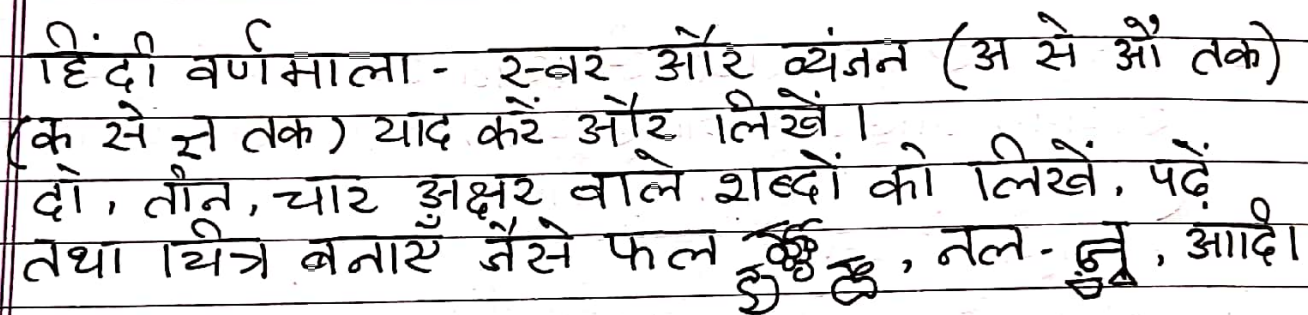 हिंदी वर्णमाला - स्वर और व्यंजन (अ से औ तक)
(क से ज्ञ तक) याद करें और लिखें।
दो, तीन, चार अक्षर वाले शब्दों को लिखें, पढ़ें
तथा चित्र बनाएँ जैसे फल , नल - , आदि।